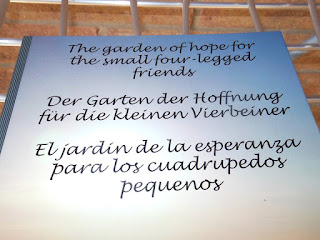 The garden of hope for
the small four-legged
friends
Der Garten der Hoffnung
für die kleinen Vierbeiner
El jardin de la esperanza
para los cuadrupedos
pequenos